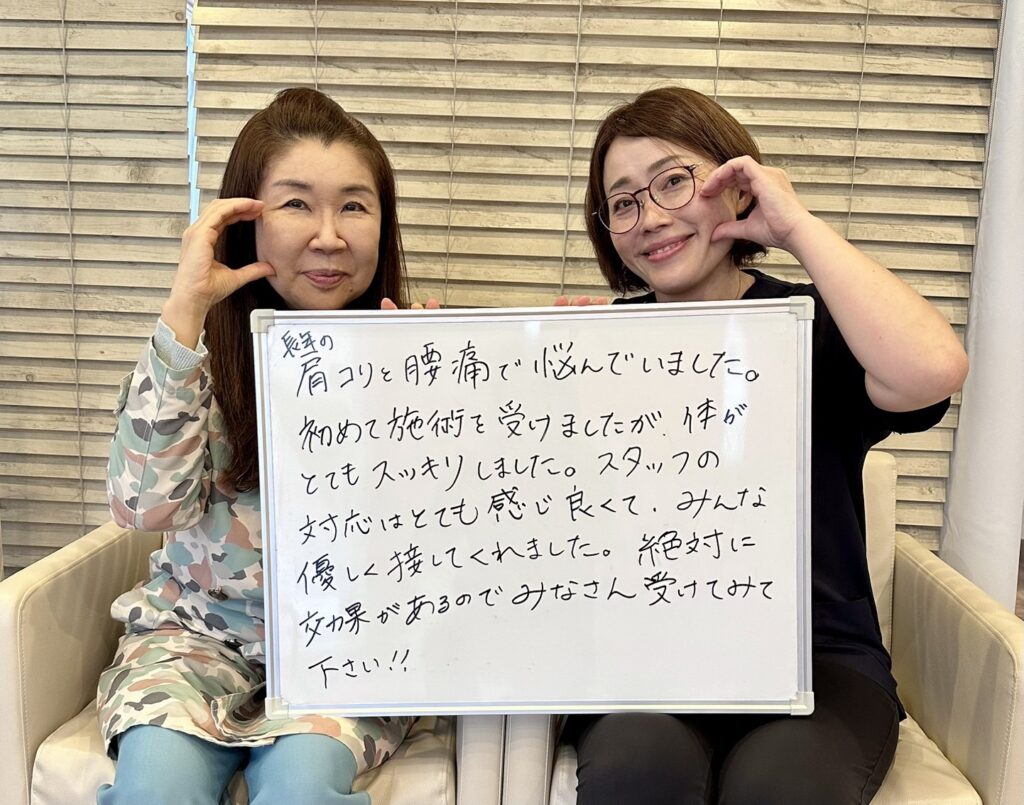 長年の
肩コリと腰痛で悩んでいました。
初めて施術を受けましたが、体が
とてもスッキリしました。スタッフの
対応はとても感じ良くて、みんな
優しく接してくれました。絶対に
効果があるのでみなさん受けてみて
下さい!!